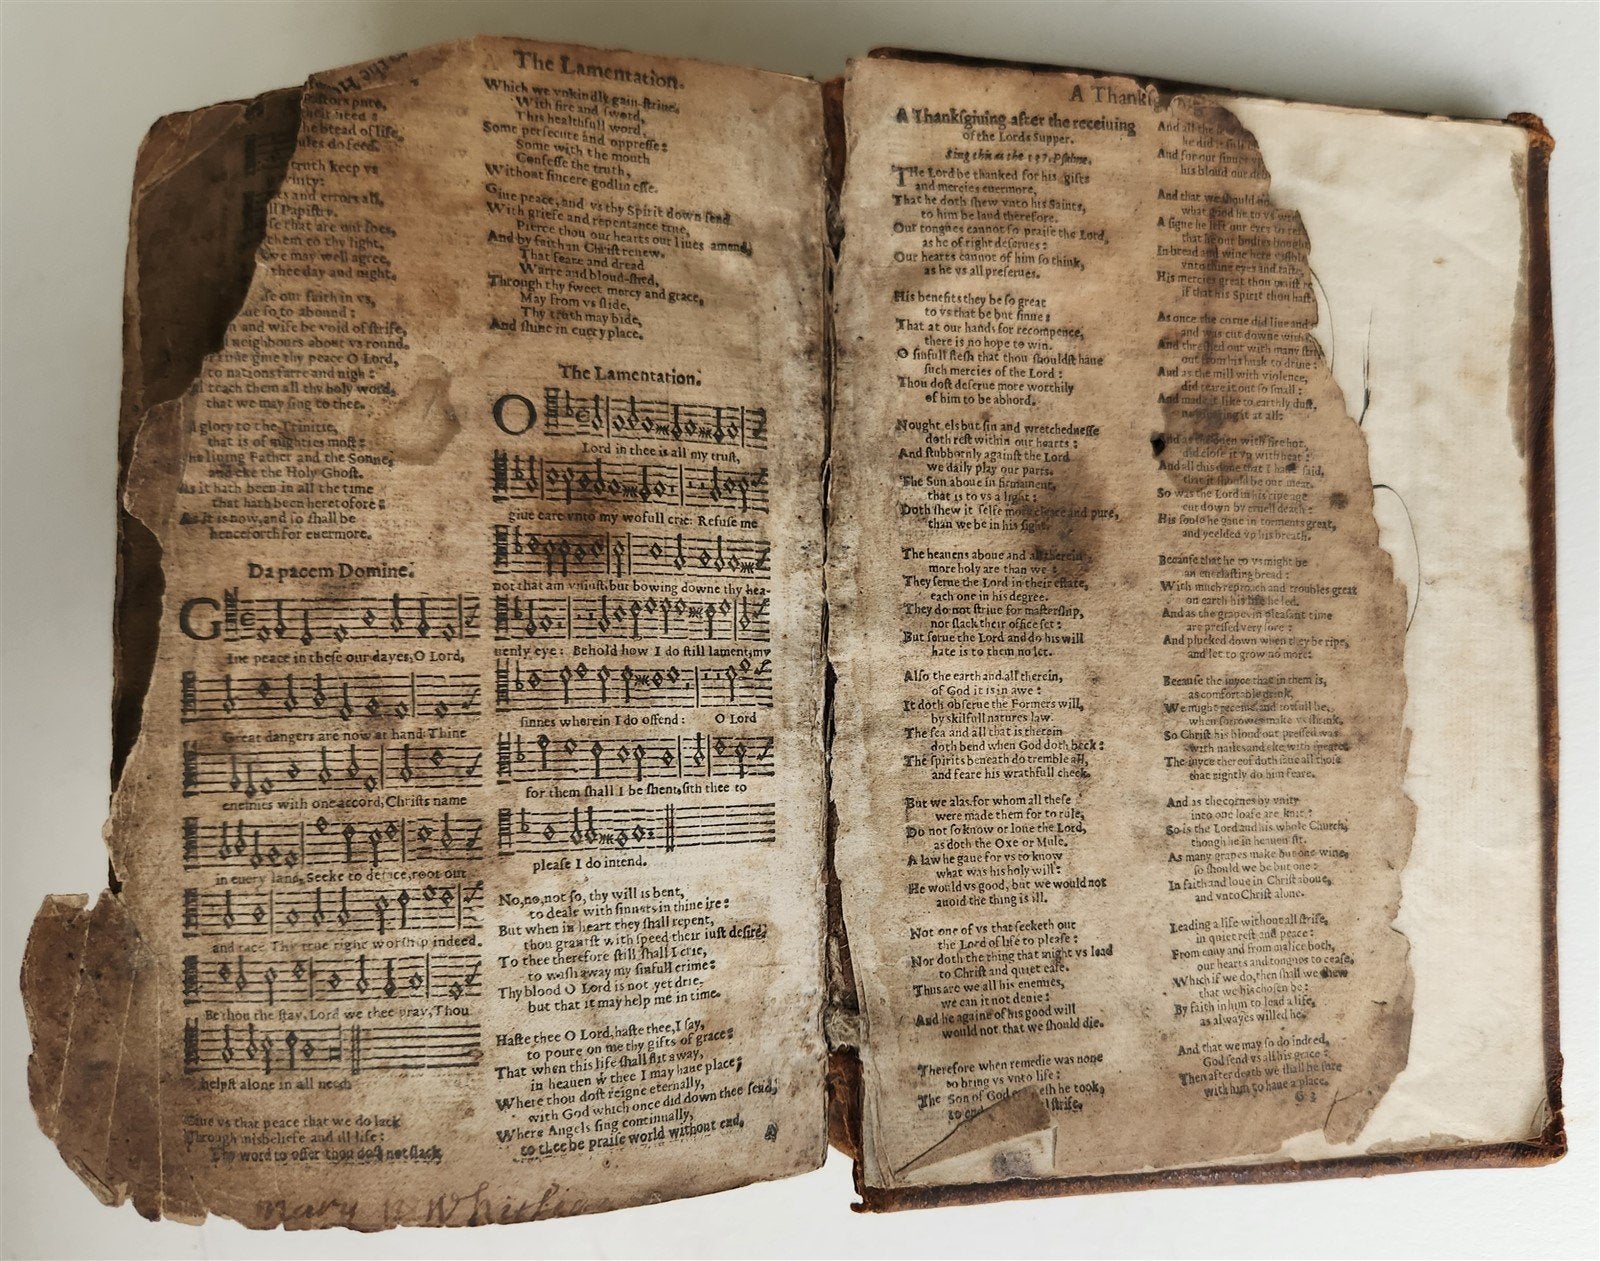 The Lamentation.
pastors pure,
their need:
the bread of life,
do feed.
truth keep vs
and errors all,
Papistry.
that are our foes,
them to thy light,
we may well agree,
thee day and night.
our faith in vs,
so to abound:
and wife be void of strife,
neighbours about vs round.
giue thy peace O Lord,
to nations farre and nigh:
teach them all thy holy word,
that we may sing to thee.
glory to the Trinitie,
that is of mighties most:
The liuing Father and the Sonne,
and eke the Holy Ghost.
As it hath been in all the time
that hath been heretofore:
As it is now, and so shall be
henceforth for euermore.
Da pacem Domine.
Giue peace in these our dayes, O Lord,
Great dangers are now at hand: Thine
enemies with one accord, Christs name
in euery land, Seeke to deface, root out
and race Thy true right worship indeed.
Be thou the stay, Lord we thee pray, Thou
helpst alone in all need.
Giue vs that peace that we do lack
Through misbeliefe and ill life:
Thy word to offer thou dost not slack
Mary
Which we vnkindly gain-striue.
With fire and sword,
This healthfull word,
Some persecute and oppresse:
Some with the mouth
Confesse the truth,
Without sincere godlinesse.
Giue peace, and vs thy Spirit down send
With griefe and repentance true,
Pierce thou our hearts our liues amend,
And by faith in Christ renew.
That feare and dread
Warre and bloud-shed,
Through thy sweet mercy and grace,
May from vs slide,
Thy truth may bide,
And shine in euery place.
The Lamentation.
O Lord in thee is all my trust,
giue eare vnto my wofull crie: Refuse me
not that am vniust, but bowing downe thy hea-
uenly eye: Behold how I do still lament, my
sinnes wherein I do offend: O Lord
for them shall I be shent, sith thee to
please I do intend.
No, no, not so, thy will is bent,
to deale with sinners in thine ire:
But when in heart they shall repent,
thou grantst with speed their iust desire.
To thee therefore still shall I crie,
to wash away my sinfull crime:
Thy blood O Lord is not yet drie,
but that it may help me in time.
Haste thee O Lord, haste thee, I say,
to poure on me thy gifts of grace:
That when this life shall flit away,
in heauen w thee I may haue place;
Where thou dost reigne eternally,
with God which once did down thee send,
Where Angels sing continually,
to thee be praise world without end.
A Thanksg
A Thanksgiuing after the receiuing
of the Lords Supper.
Sing this as the 137. Psalme.
THe Lord be thanked for his gifts
and mercies euermore,
That he doth shew vnto his Saints,
to him be laud therefore.
Our tongues cannot so praise the Lord,
as he of right deserues:
Our hearts cannot of him so think,
as he vs all preserues.
His benefits they be so great
to vs that be but sinne:
That at our hands for recompence,
there is no hope to win.
O sinfull flesh that thou shouldst haue
such mercies of the Lord:
Thou dost deserue more worthily
of him to be abhord.
Nought els but sin and wretchednesse
doth rest within our hearts:
And stubbornly against the Lord
we daily play our parts.
The Sun aboue in firmament,
that is to vs a light:
Doth shew it selfe more cleare and pure,
than we be in his sight.
The heauens aboue and all therein
more holy are than we:
They serue the Lord in their estate,
each one in his degree.
They do not striue for mastership,
nor slack their office set:
But serue the Lord and do his will
hate is to them no let.
Also the earth and all therein,
of God it is in awe:
It doth obserue the Formers will,
by skilfull natures law.
The sea and all that is therein
doth bend when God doth beck:
The spirits beneath do tremble all,
and feare his wrathfull check.
But we alas, for whom all these
were made them for to rule,
Do not so know or loue the Lord,
as doth the Oxe or Mule.
A law he gaue for vs to know
what was his holy will:
He would vs good, but we would not
auoid the thing is ill.
Not one of vs that seeketh out
the Lord of life to please:
Nor doth the thing that might vs lead
to Christ and quiet ease.
Thus are we all his enemies,
we can it not denie:
And he againe of his good will
would not that we should die.
Therefore when remedie was none
to bring vs vnto life:
The Son of God flesh he took,
to end strife.
And all the
he did
And for our sinnes
his bloud our deb
And that we should
what good he to vs
A signe he left our eyes to
that he our bodies bought
In bread and wine here visible
vnto thine eyes and taste,
His mercies great thou
if that his Spirit thou hast.
As once the corne did liue and
and was cut downe with
And threshed out with many
out from his husk to driue:
And as the mill with violence,
did teare it out so small:
And made it like to earthly dust,
not sparing it at all:
And as the ouen with fire hot,
did close it vp with heat:
And all this done that I haue said,
that it should be our meat.
So was the Lord in his ripe age
cut down by cruell death:
His soule he gaue in torments great,
and yeelded vp his breath.
Because that he to vs might be
an euerlasting bread:
With much reproach and troubles great
on earth his life he led.
And as the grapes in pleasant time
are pressed very sore:
And plucked down when they be ripe,
and let to grow no more:
Because the iuyce that in them is,
as comfortable drink,
We might receiue, and ioyfull be,
when sorrowes make vs shrink.
So Christ his bloud out pressed was
with nailes and eke with speare:
The iuyce thereof doth saue all those
that rightly do him feare.
And as the cornes by vnity
into one loafe are knit:
So is the Lord and his whole Church,
though he in heauen sit.
As many grapes make but one wine,
so should we be but one:
In faith and loue in Christ aboue,
and vnto Christ alone.
Leading a life without all strife,
in quiet rest and peace:
From enuy and from malice both,
our hearts and tongues to cease,
Which if we do, then shall we shew
that we his chosen be:
By faith in him to lead a life,
as alwayes willed he.
And that we may so do indeed,
God send vs all his grace:
Then after death we shall be sure
with him to haue a place.
G 3